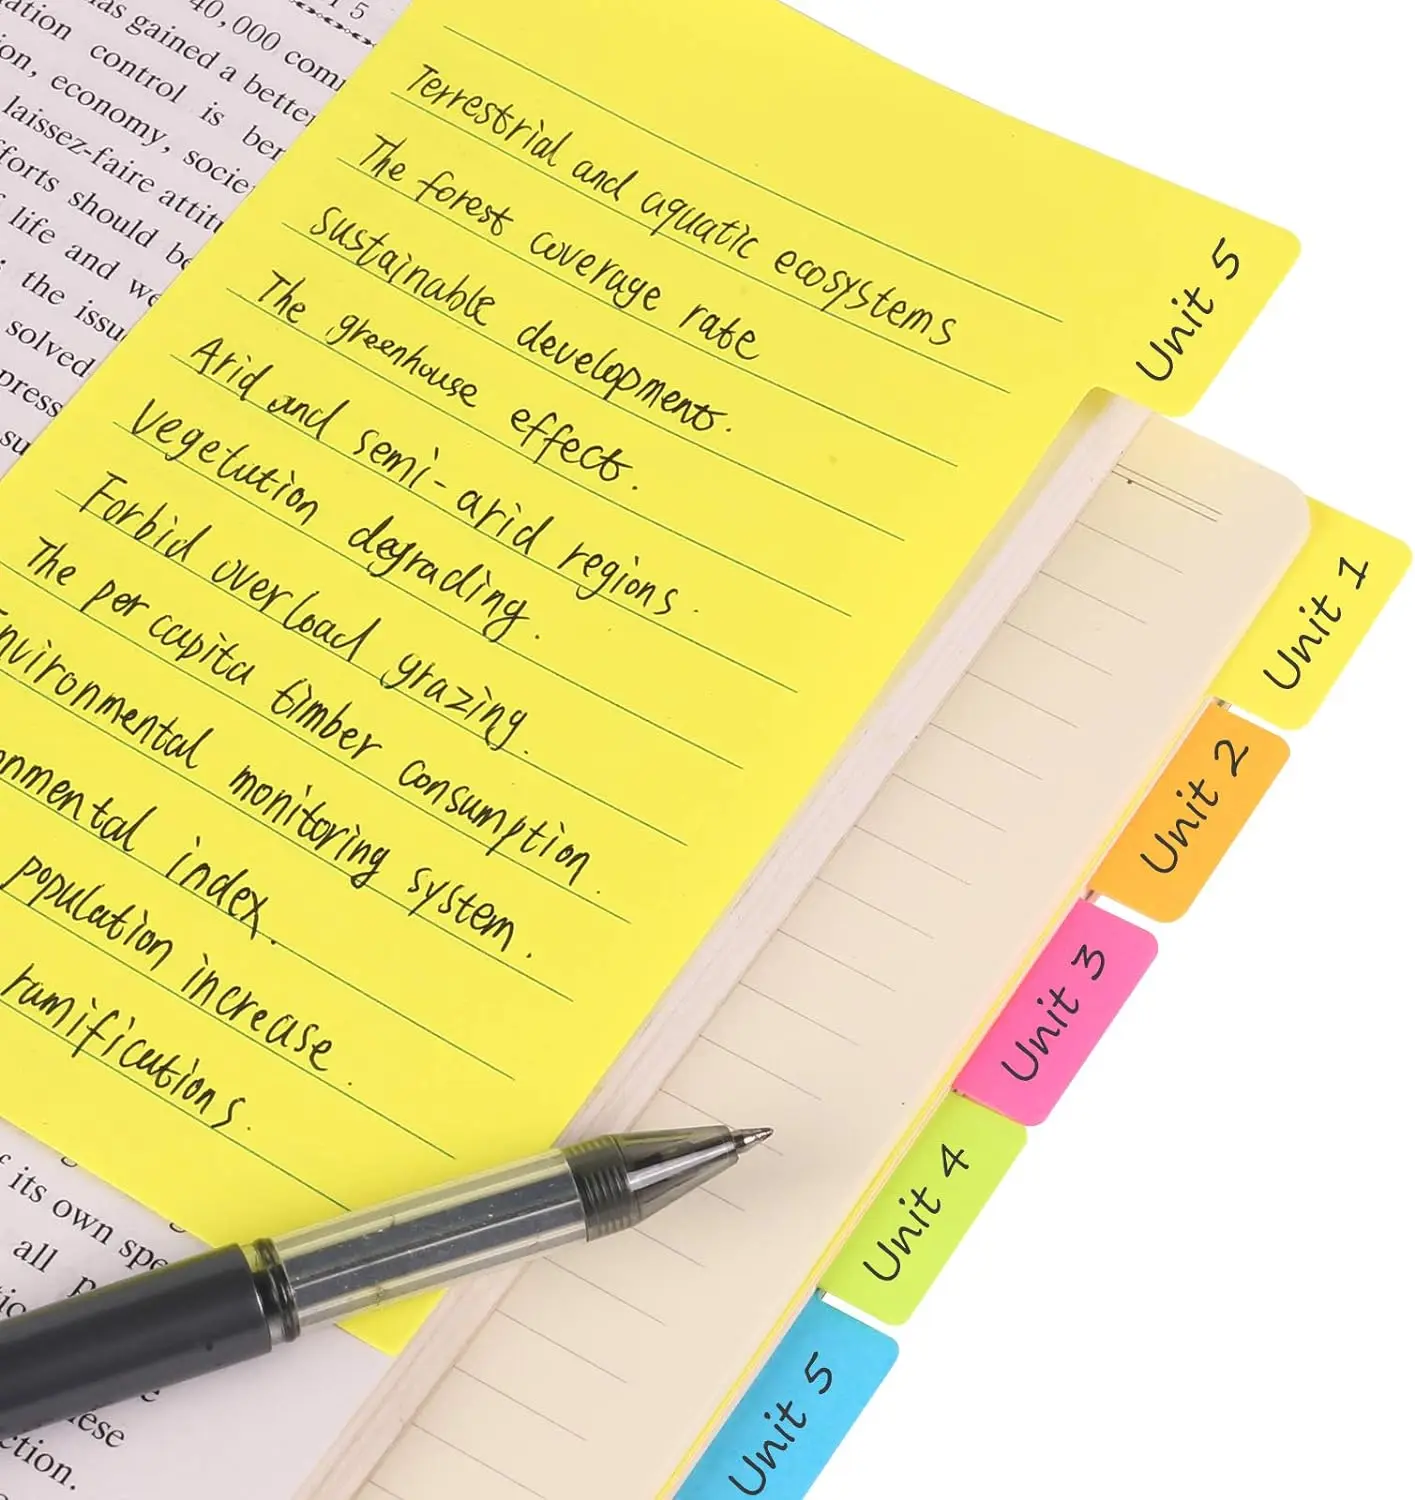 1 5
40,000 com
has gained a better
ation control is ben
on, economy, socie
laissez-faire attitu
forts should be
life and we
the issu
solved
press
su
Terrestrial and aquatic ecosystems
The forest coverage rate
Sustainable development.
The greenhouse effect.
Arid and semi-arid regions.
Vegetation degrading.
Forbid overload grazing.
The per capita timber consumption.
nvironmental monitoring system.
onmental index.
population increase.
ramifications.
Unit 5
Unit 1
Unit 2
Unit 3
Unit 4
Unit 5
f its own spe
all p
ese
ction.